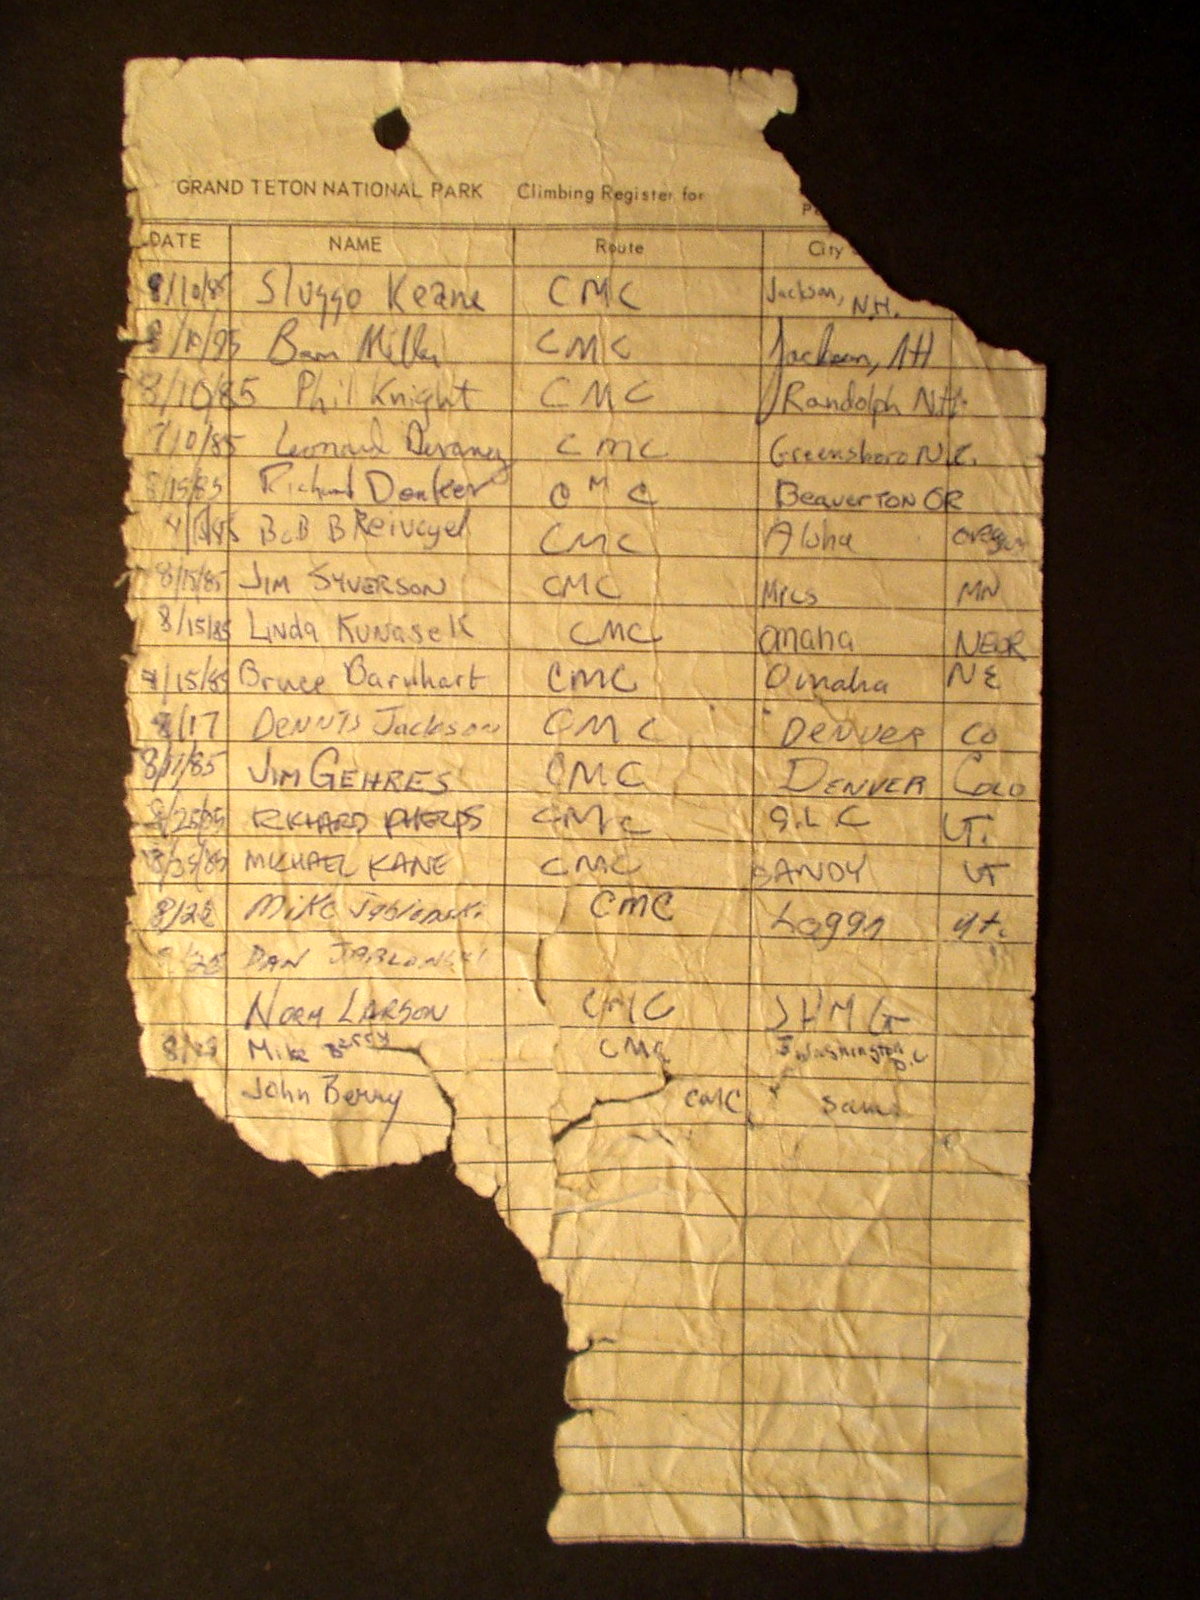 GRAND TETON NATIONAL PARK Climbing Register for
DATE NAME Route City
8/10/85 Sluggo Keane CMC Jackson, N.H.
8/10/85 Bam Miller CMC Jackson, NH
8/10/85 Phil Knight CMC Randolph NH
/10/85 Leonard CMC Greensboro N.C.
8/15/85 Richard CMC BEAVERTON OR
BOB CMC Aloha Oregon
8/15/85 JIM SYVERSON CMC MN
8/15/85 Linda Kunasek CMC Omaha NEBR
/15/85 Bruce Barnhart CMC Omaha NE
8/17 DENNIS Jackson CMC DENVER CO
8/17/85 JIM GEHRES CMC DENVER COLO
8/25/85 RICHARD PHELPS CMC S.L.C UT.
8/25/85 MICHAEL KANE CMC SANDY UT
8/28 Mike Jablonski CMC Logan Ut.
DAN JABLONSKI
NORM LARSON CMC JHMG
Mike Berry CMC Washington D.C
John Berry CMC Same